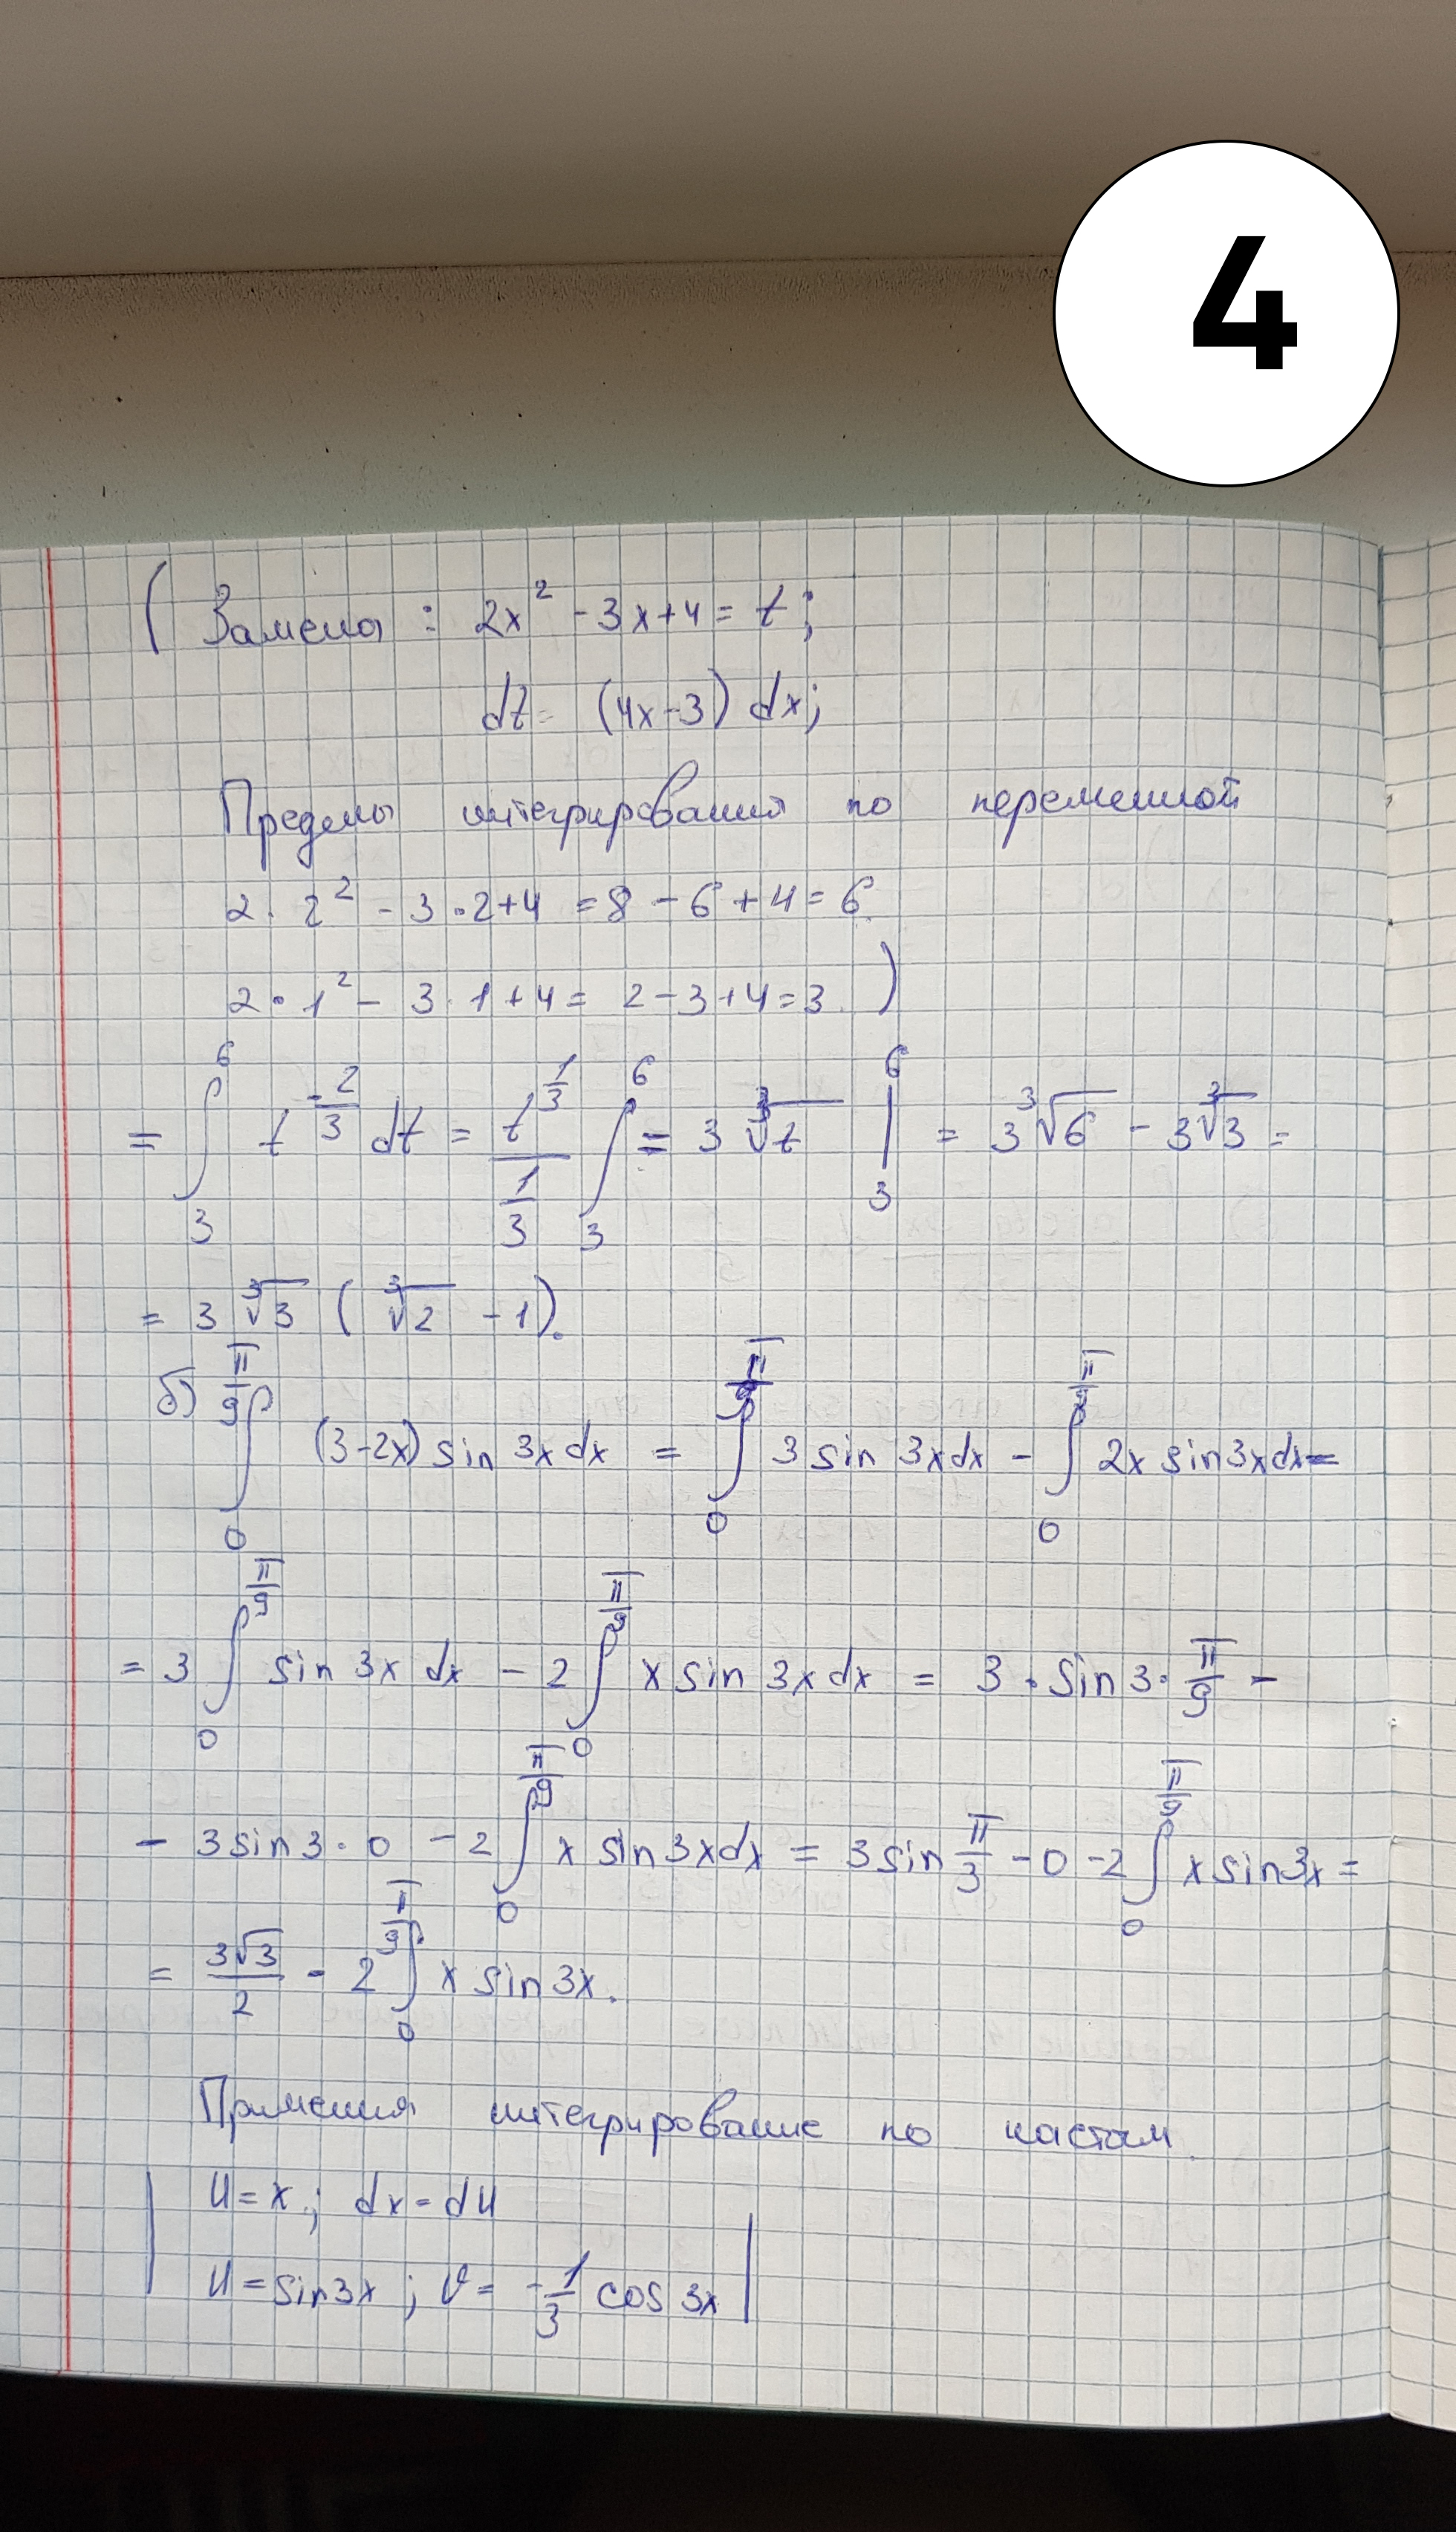 4
( Замена : 2x² - 3x + 4 = t;
dt = (4x-3) dx;
Пределы интегрирования по переменной
2 · 2² - 3 · 2 + 4 = 8 - 6 + 4 = 6
2 · 1² - 3 · 1 + 4 = 2 - 3 + 4 = 3 )
= ∫₃⁶ t^(-2/3) dt = t^(1/3)/(1/3) ∫₃⁶ = 3 ∛t |₃⁶ = 3∛6 - 3∛3 =
= 3 ∛3 ( ∛2 - 1).
б) ∫₀^(π/9) (3-2x) sin 3x dx = ∫₀^(π/9) 3 sin 3x dx - ∫₀^(π/9) 2x sin3x dx =
= 3 ∫₀^(π/9) sin 3x dx - 2 ∫₀^(π/9) x sin 3x dx = 3 · sin 3 · π/9 -
- 3 sin 3 · 0 - 2 ∫₀^(π/9) x sin 3x dx = 3 sin π/3 - 0 - 2 ∫₀^(π/9) x sin 3x =
= 3√3/2 - 2 ∫₀^(π/9) x sin 3x.
Применим интегрирование по частям.
| U = x; dx = du
U = sin3x ; v = -1/3 cos 3x |